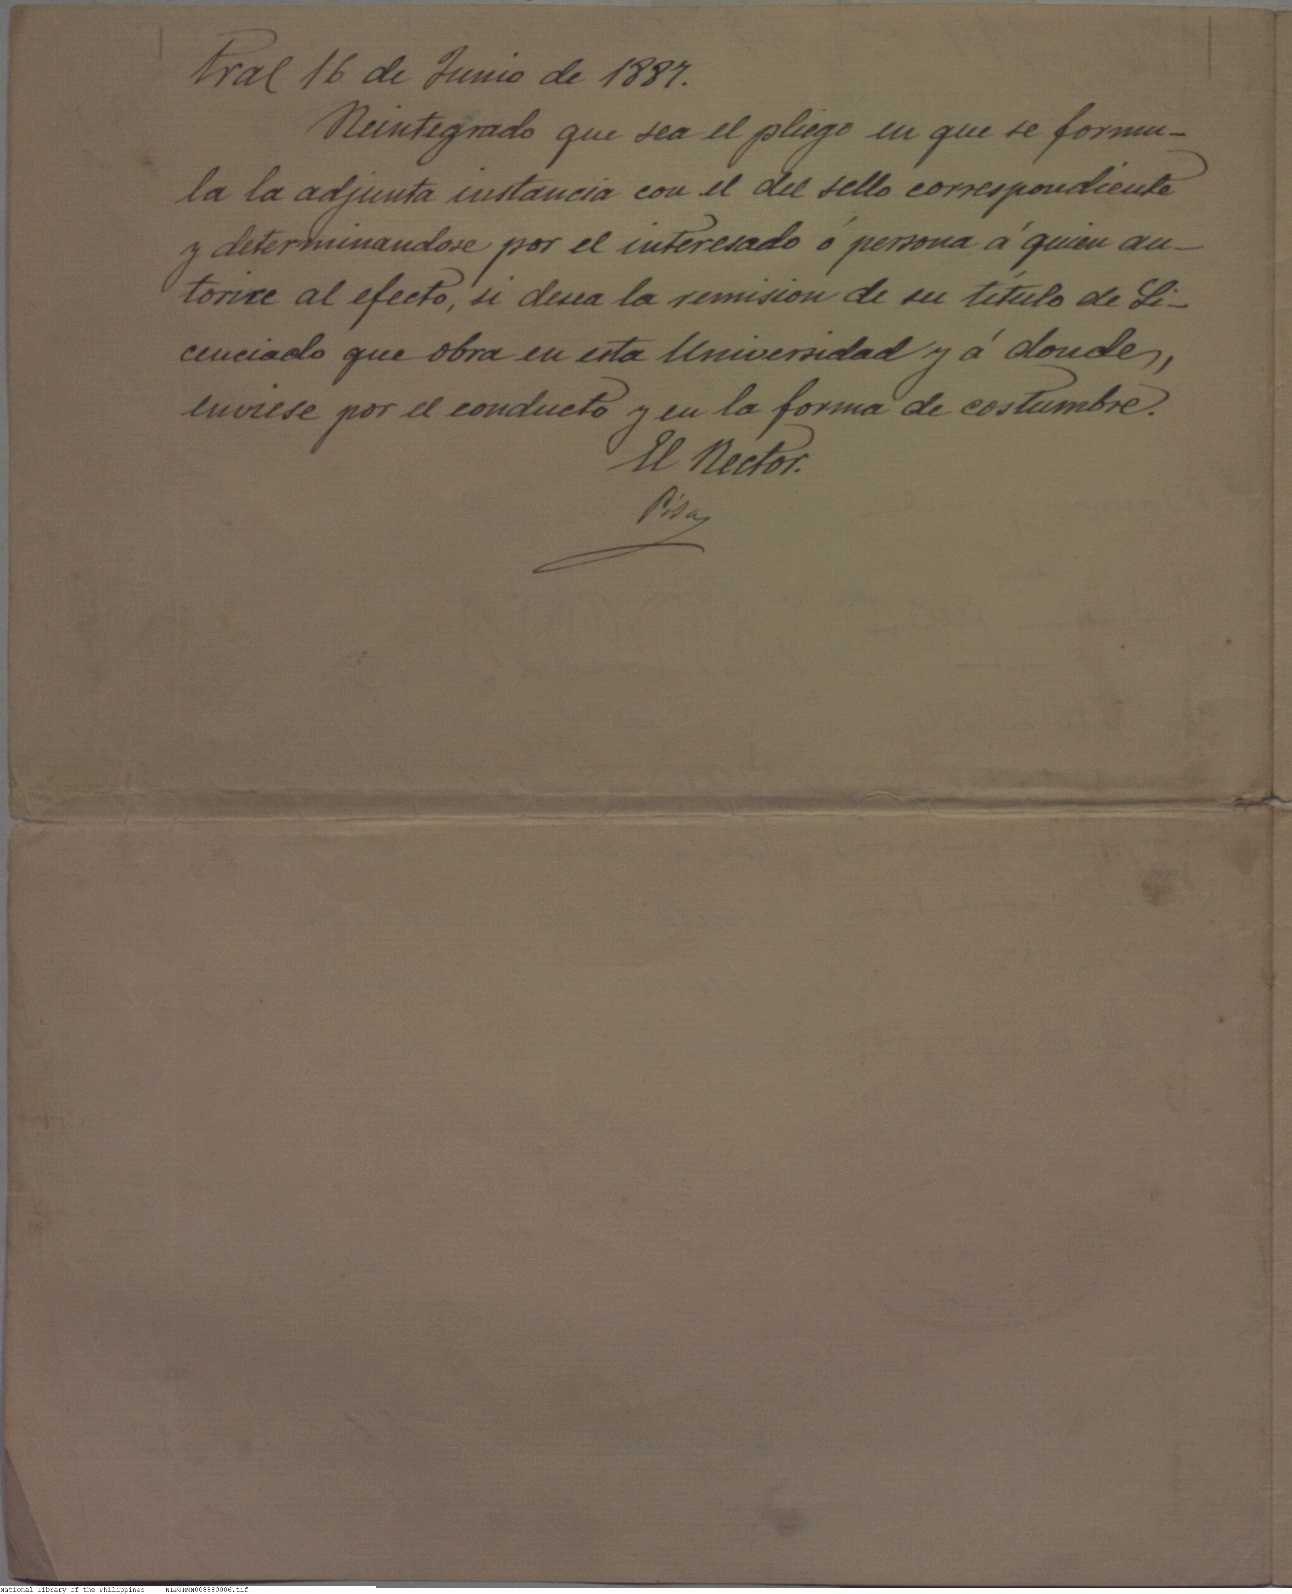 tral 16 de Junio de 1887.
Reintegrado que sea el pliego en que se formu-
la la adjunta instancia con el del sello correspondiente
y determinandose por el interesado ó persona á quien au-
torice al efecto, si desea la remision de su título de Li-
cenciado que obra en esta Universidad y á donde,
enviese por el conducto y en la forma de costumbre.
El Rector.
Pisa
National Library of the Philippines